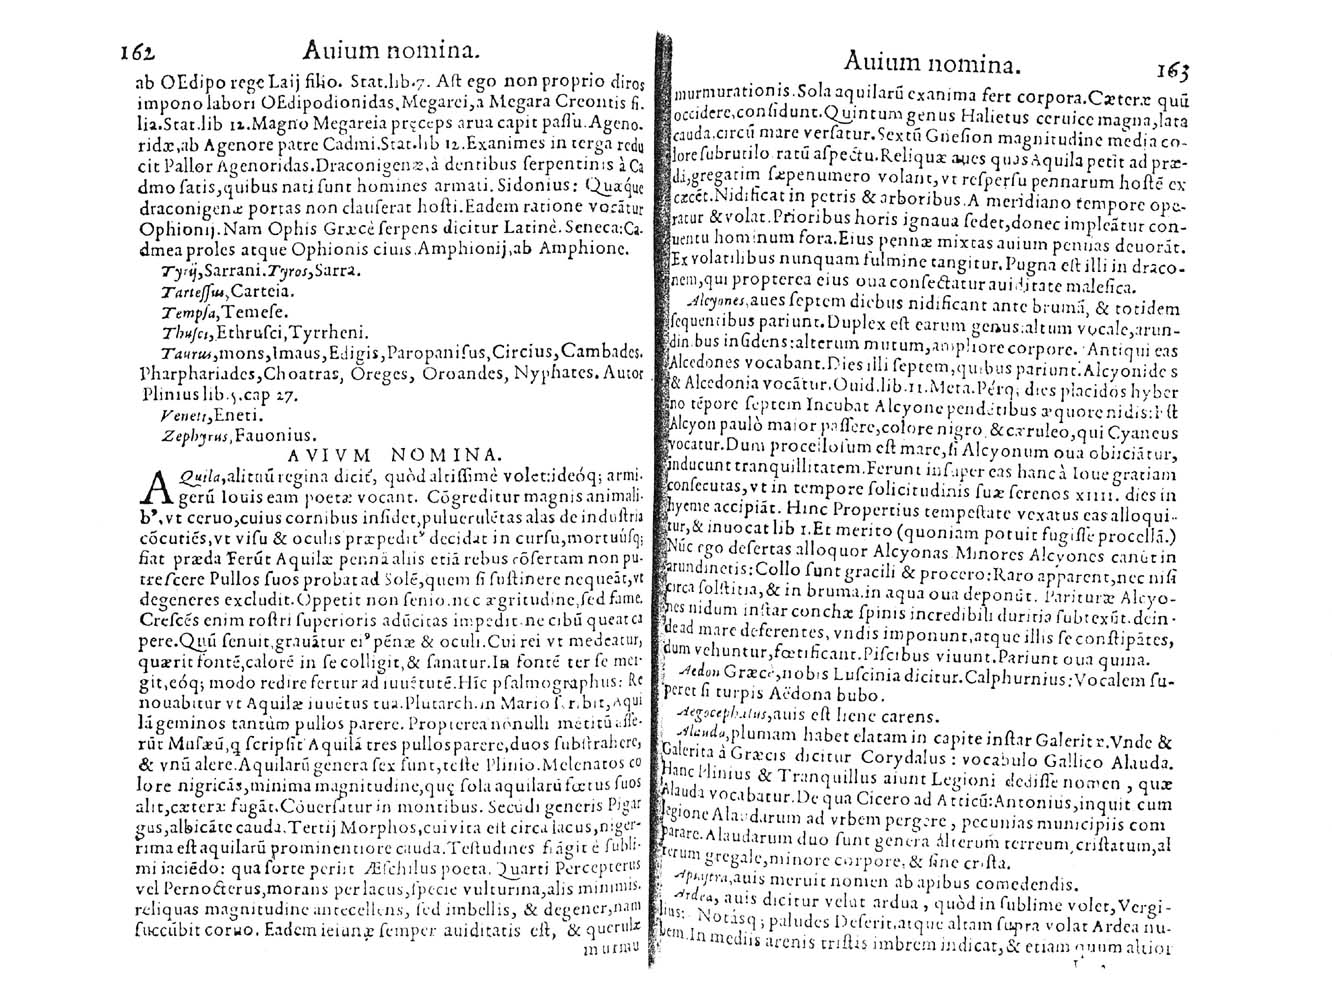 162 Auium nomina.
ab OEdipo rege Laij filio. Stat.lib.7. Aſt ego non proprio diros
impono labori OEdipodionidas, Megarei, a Megara Creontis fi.
lia.Stat.lib 12.Magno Megareia pręceps arua capit paſſu.Ageno.
ridæ,ab Agenore patre Cadmi.Stat.lib 12.Exanimes in terga redu
cit Pallor Agenoridas.Draconigenæ,à dentibus ſerpentinis à Ca
dmo ſatis,quibus nati ſunt homines armati. Sidonius: Quæq́ue
draconigenæ portas non clauſerat hoſti.Eadem ratione vocātur
Ophionij.Nam Ophis Græcè ſerpens dicitur Latinè. Seneca:Ca-
dmea proles atque Ophionis cius.Amphionij,ab Amphione.
Tyrij,Sarrani.Tyros,Sarra.
Tarteſſus,Carteia.
Tempſa,Temeſe.
Thuſci,Ethruſci,Tyrrheni.
Taurus,mons,Imaus,Edigis,Paropaniſus,Circius,Cambades.
Pharphariades,Choatras, Oreges, Oroandes, Nyphates. Autor
Plinius lib.5.cap 27.
Veneti,Eneti.
Zephyrus,Fauonius.
AVIVM NOMINA.
AQuila,alituū regina dicit', quòd altiſſimè volet:ideóq; armi.
gerū Iouis eam poetæ vocant. Cōgreditur magnis animali-
b',vt ceruo,cuius cornibus inſidet,puluerulētas alas de induſtria
cōcutiēs,vt viſu & oculis præpedit' decidat in curſu,mortuúſq;
fiat præda Ferūt Aquilæ pennā aliis etiā rebus cōſertam non pu-
treſcere Pullos ſuos probat ad Solē,quem ſi ſuſtinere nequeāt,vt
degeneres excludit.Oppetit non ſenio.nec ægritudine,ſed fame.
Creſcēs enim roſtri ſuperioris adūcitas impedit.ne cibū queat ca
pere.Quū ſenuit,grauātur ei' pēnæ & oculi.Cui rei vt medeatur,
quærit fontē,calorē in ſe colligit,& ſanatur.In fontē ter ſe mer-
git,eóq; modo redire fertur ad iuuētutē.Hīc pſalmographus: Re
nouabitur vt Aquilæ iuuētus tua.Plutarch.in Mario ſcribit,Aqui
lā geminos tantùm pullos parere. Propterea nonulli mētitū eſſe-
rūt Muſæū,q ſcripſit Aquilā tres pullos parere,duos ſubſtrahere,
& vnū alere.Aquilarū genera ſex ſunt,teſte Plinio.Melenatos co
lore nigricās,minima magnitudine,quę ſola aquilarū fœtus ſuos
alit,cæteræ fugāt.Cōuerſatur in montibus. Secūdi generis Pigar
gus,albicāte cauda.Tertij Morphos,cui vita eſt circa lacus,niger-
rima eſt aquilarū prominentiore cauda.Teſtudines frāgit è ſubli-
mi iaciēdo: qua ſorte periit Æſchilus poeta. Quarti Percepterus
vel Pernocterus,morans per lacus,ſpecie vulturina,alis minimis.
reliquas magnitudine antecellens, ſed imbellis, & degener,nam
ſuccūbit coruo. Eadem ieiunæ ſemper auiditatis eſt, & querulæ
murmu
Auium nomina. 163
murmurationis.Sola aquilarū exanima fert corpora.Cæteræ quū
occidere,conſidunt.Quintum genus Halietus ceruice magna,lata
cauda.circū mare verſatur.Sextū Gneſion magnitudine media co-
lore ſubrutilo ratū aſpectu.Reliquæ aues quas Aquila petit ad præ-
dā,gregatim ſæpenumero volant,vt reſperſu pennarum hoſtē ex
cæcēt.Nidificat in petris & arboribus.A meridiano tempore ope-
ratur & volat.Prioribus horis ignaua ſedet,donec impleātur con-
uentu hominum fora.Eius pennæ mixtas auium pennas deuorāt.
Ex volatilibus nunquam fulmine tangitur.Pugna eſt illi in draco-
nem,qui propterea eius oua conſectatur auiditate malefica.
Alcyones,aues ſeptem diebus nidificant ante brumā, & totidem
ſequentibus pariunt.Duplex eſt earum genus:altum vocale,arun-
dinibus inſidens:alterum mutum,ampliore corpore. Antiqui eas
Alcedones vocabant.Dies illi ſeptem,quibus pariunt.Alcyonides
& Alcedonia vocātur.Ouid.lib.11.Meta.Pérq; dies placidos hyber
no tēpore ſeptem Incubat Alcyone pendētibus æquore nidis:Eſt
Alcyon paulò maior paſſere,colore nigro & cæruleo,qui Cyaneus
vocatur.Dum proceiloſum eſt mare,ſi Alcyonum oua obiiciātur,
inducunt tranquillitatem.Ferunt inſuper eas hanc à Ioue gratiam
conſecutas,vt in tempore ſolicitudinis ſuæ ſerenos xiiii. dies in
hyeme accipiāt. Hinc Propertius tempeſtate vexatus eas alloqui-
tur,& inuocat lib 1.Et merito (quoniam potuit fugiſſe procellā.)
Nūc ego deſertas alloquor Alcyonas Minores Alcyones canūt in
arundinetis:Collo ſunt gracili & procero:Raro apparent,nec niſi
circa ſolſtitia,& in bruma.in aqua oua deponūt. Parituræ Alcyo-
nes nidum inſtar conchæ ſpinis incredibili duritia ſubtexūt.dein-
de ad mare deferentes,vndis imponunt,atque illis ſe conſtipātes,
dum vehuntur,fœtificant.Piſcibus viuunt.Pariunt oua quina.
Aedon Græcè,nobis Luſcinia dicitur.Calphurnius:Vocalem ſu-
peret ſi turpis Aëdona bubo.
Aegocephalus,auis eſt liene carens.
Alauda,plumam habet elatam in capite inſtar Galeritæ.Vnde &
Galerita à Græcis dicitur Corydalus: vocabulo Gallico Alauda.
Hanc Plinius & Tranquillus aiunt Legioni dediſſe nomen, quæ
Alauda vocabatur.De qua Cicero ad Atticū:Antonius,inquit cum
legione Alaudarum ad vrbem pergere, pecunias municipiis com
parare.Alaudarum duo ſunt genera álterum terreum,criſtatum,al
terum gregale,minore corpore,& ſine criſta.
Apiaſtra,auis meruit nomen ab apibus comedendis.
Ardea, auis dicitur velut ardua, quòd in ſublime volet,Vergi-
lius: Notásq; paludes Deſerit,atque altam ſupra volat Ardea nu-
bem.In mediis arenis triſtis imbrem indicat,& etiam quum altior